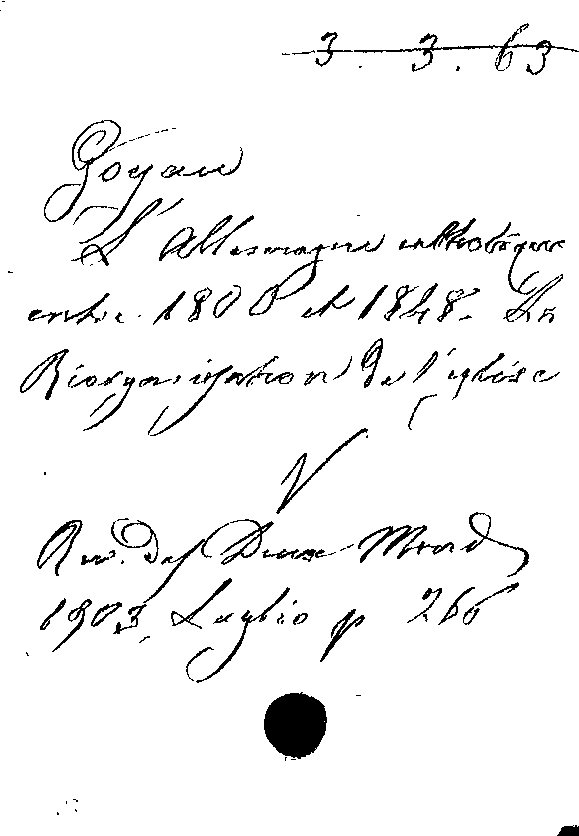 3. 3. 63
Goyau
L'Allemagne catholique
entre 1800 et 1848. La
Réorganisation de l'église
V
Rev. des Deux Mond
1903, Luglio p 266